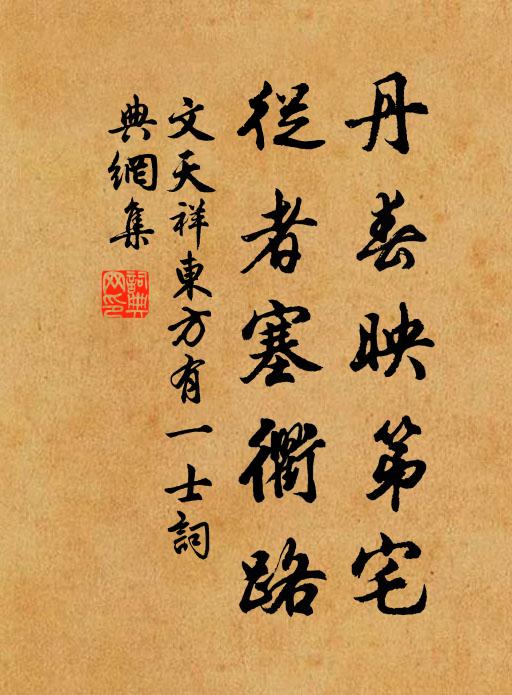 丹青映第宅
從者塞衢路
文天祥東方有一士詞
典網集
詞典
网印